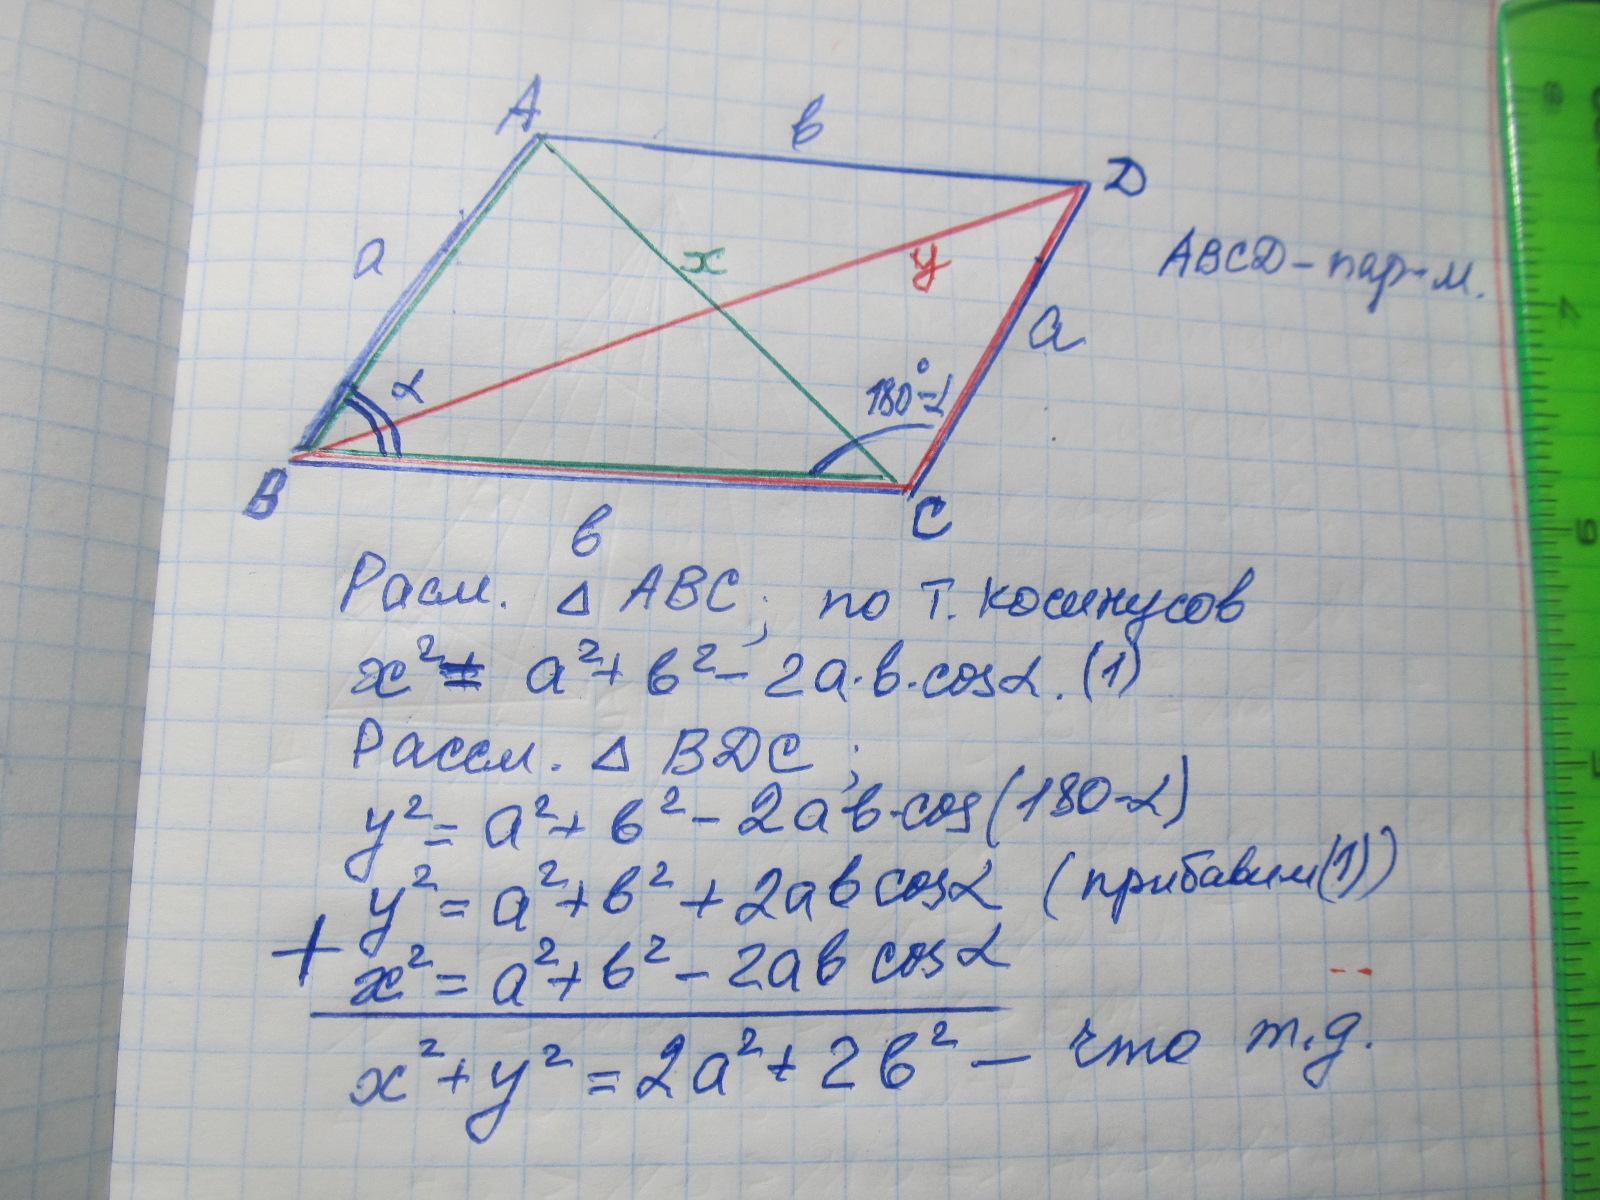 A
в
D
a
x
y
ABCD - пар-м.
α
180°-α
a
B
C
в
Расм. Δ ABC; по т. косинусов
x² = a² + в² - 2a·в·cosα. (1)
Рассм. Δ BDC;
y² = a² + в² - 2aв·cos(180-α)
y² = a² + в² + 2aв cosα (прибавим(1))
+ x² = a² + в² - 2aв cosα
x² + y² = 2a² + 2в² - что т.д.
8
7
6
5